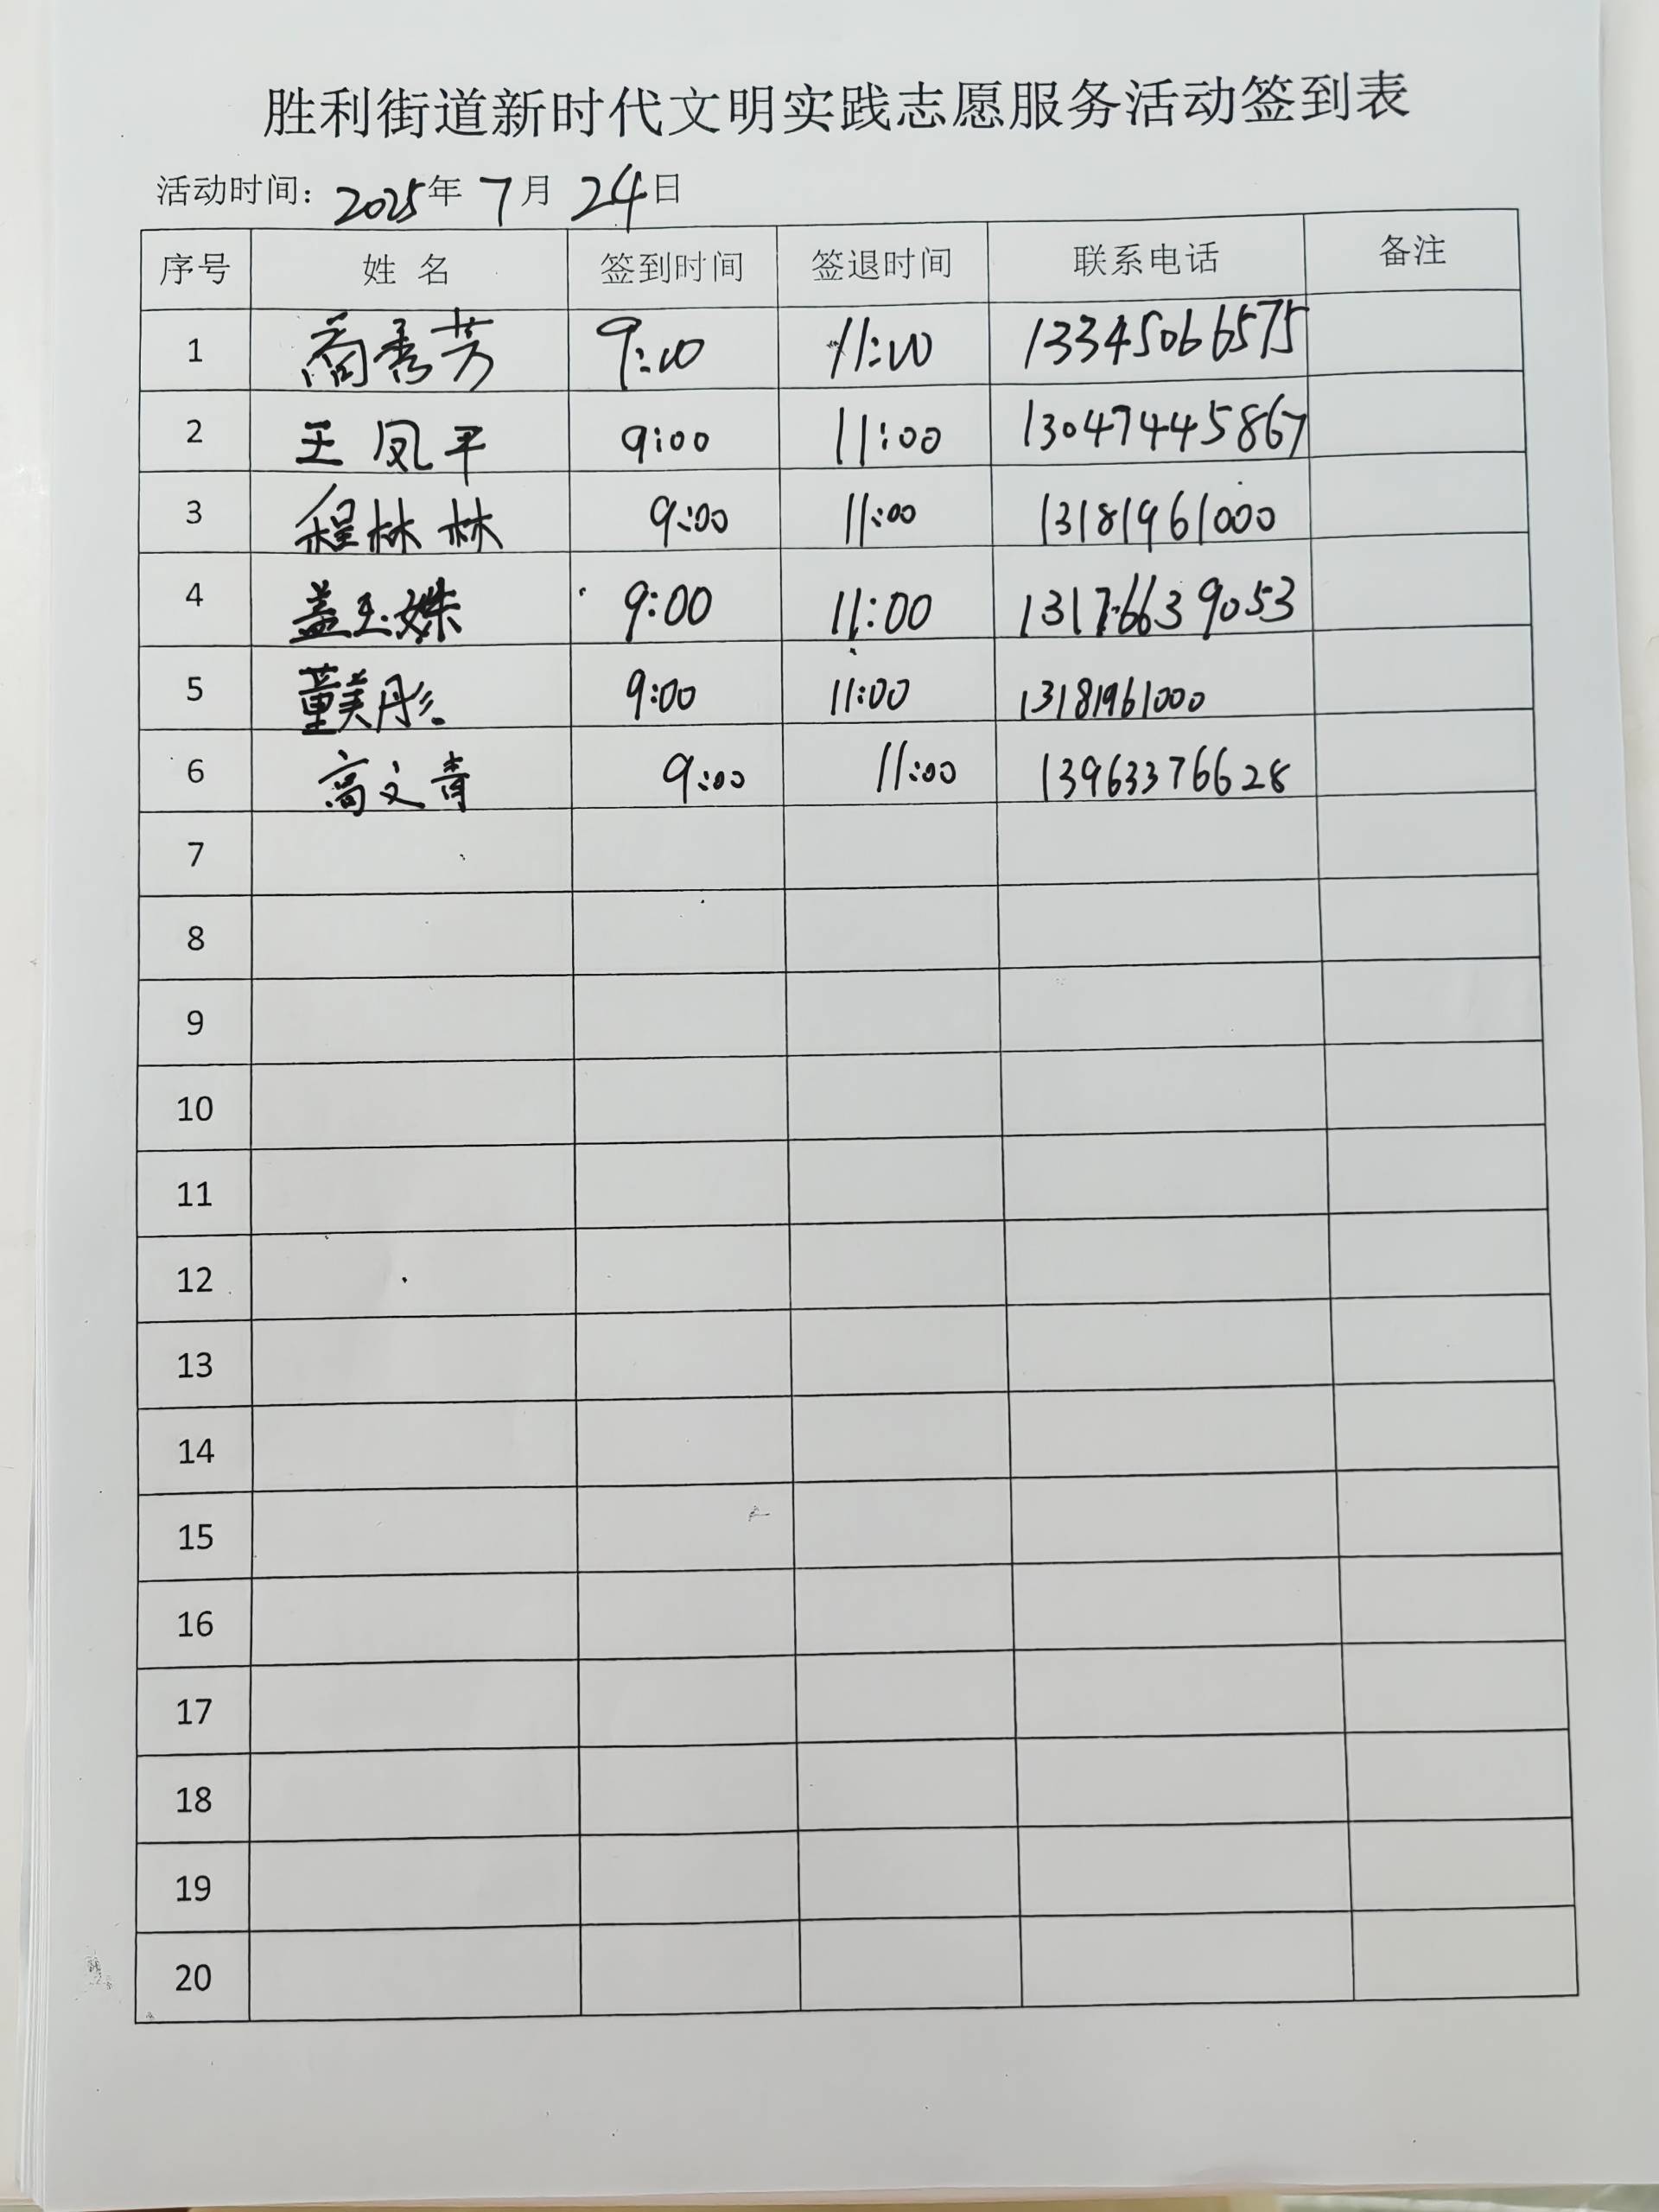 胜利街道新时代文明实践志愿服务活动签到表
活动时间：2025年 7月 24日
序号 姓 名 签到时间 签退时间 联系电话 备注
1 商秀芳 9:00 11:00 13345066575
2 王凤平 9:00 11:00 13047445867
3 程林林 9:00 11:00 13181961000
4 盖玉姝 9:00 11:00 13176639053
5 董美彤 9:00 11:00 13181961000
6 高文青 9:00 11:00 13963376628
7
8
9
10
11
12
13
14
15
16
17
18
19
20